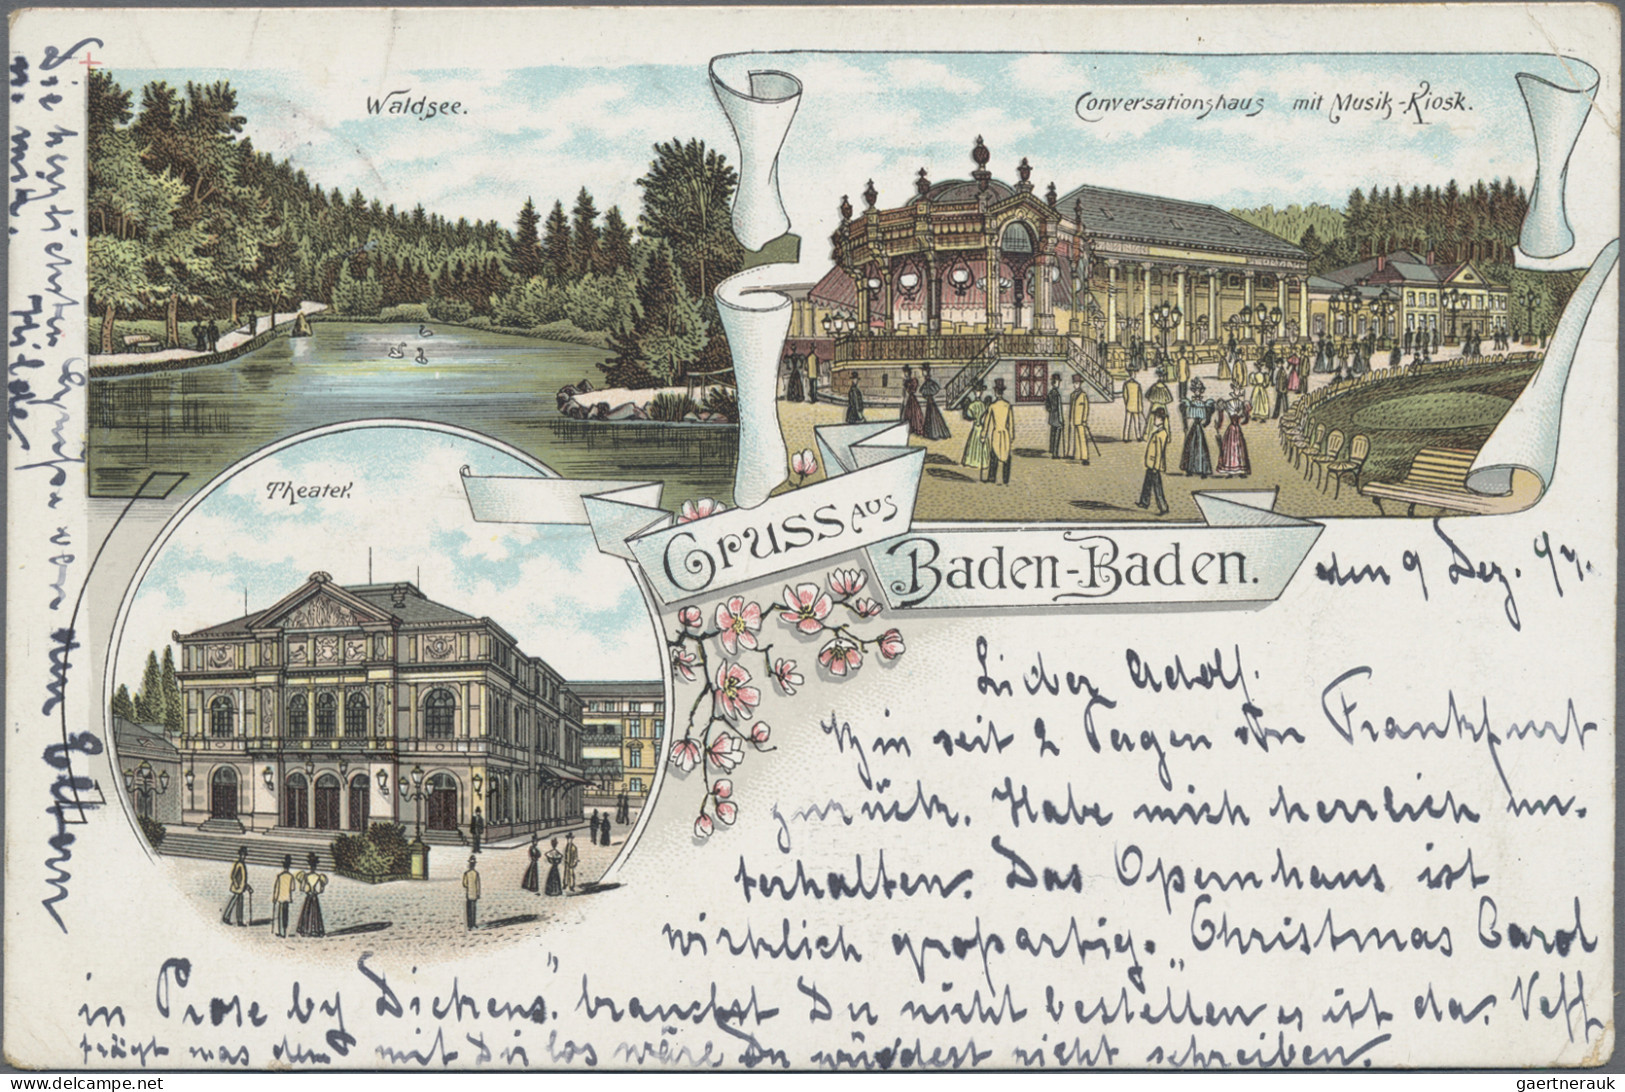 Waldsee.
Conversationshaus mit Musik-Kiosk.
Theater.
Gruss aus
Baden-Baden.
den 9 Dez. 97.
Lieber Adolf.
Bin seit 2 Tagen von Frankfurt
zurück. Habe mich herrlich un-
terhalten. Das Opernhaus ist
wirklich großartig. „Christmas Carol
in Prose by Dickens" brauchst Du nicht bestellen es ist da. Neff
frägt was denn mit Dir los wäre Du würdest nicht schreiben.
Die herzlichsten Grüßen von den Eltern
u mir. Hilde.
gaertnerauk @ delcampe.net